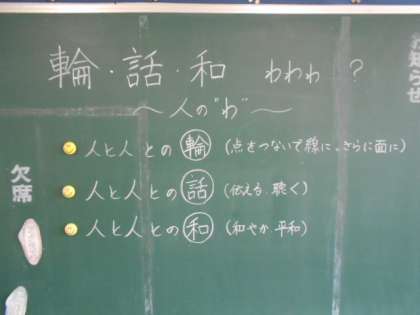 輪・話・和 わわわ ?
～人の"わ"～
人と人との輪(点をつないで線に、さらに面に)
人と人との話(伝える.聴く)
人と人との和(和やか.平和)
欠席
お知らせ